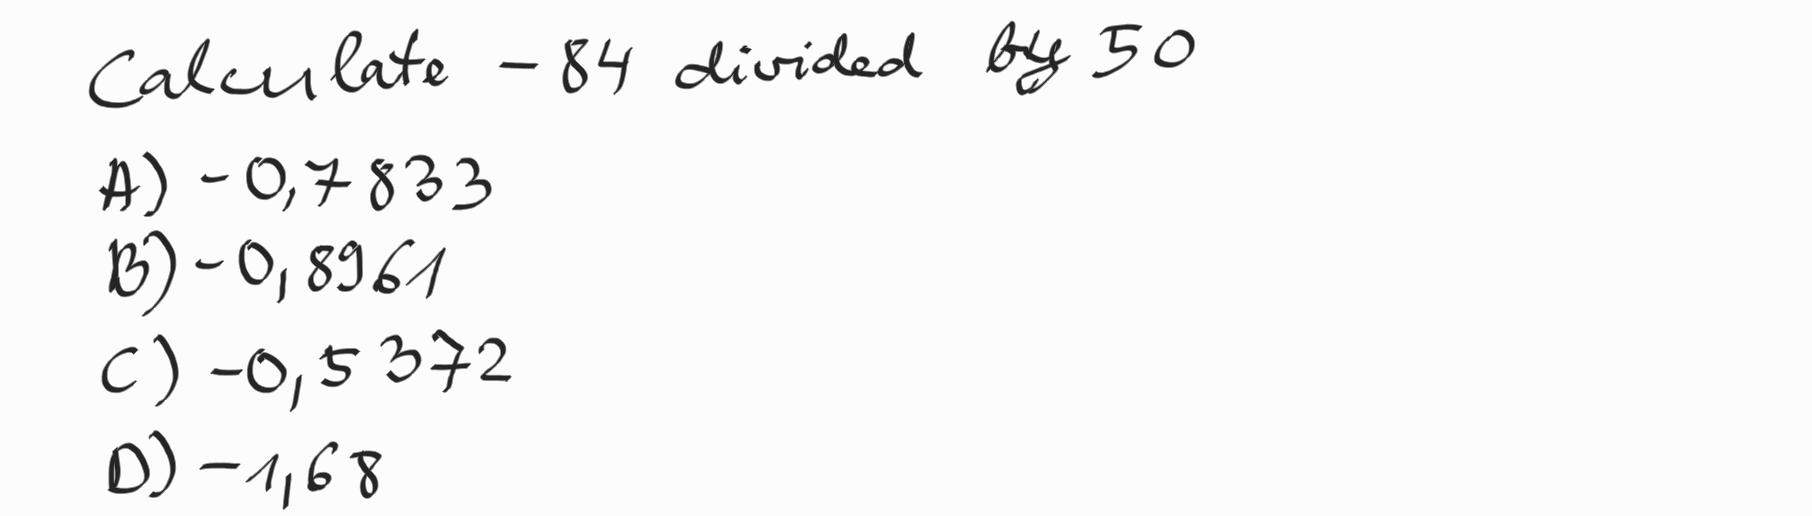 Calculate -84 divided by 50
A) -0,7833
B) -0,8961
C) -0,5372
D) -1,68